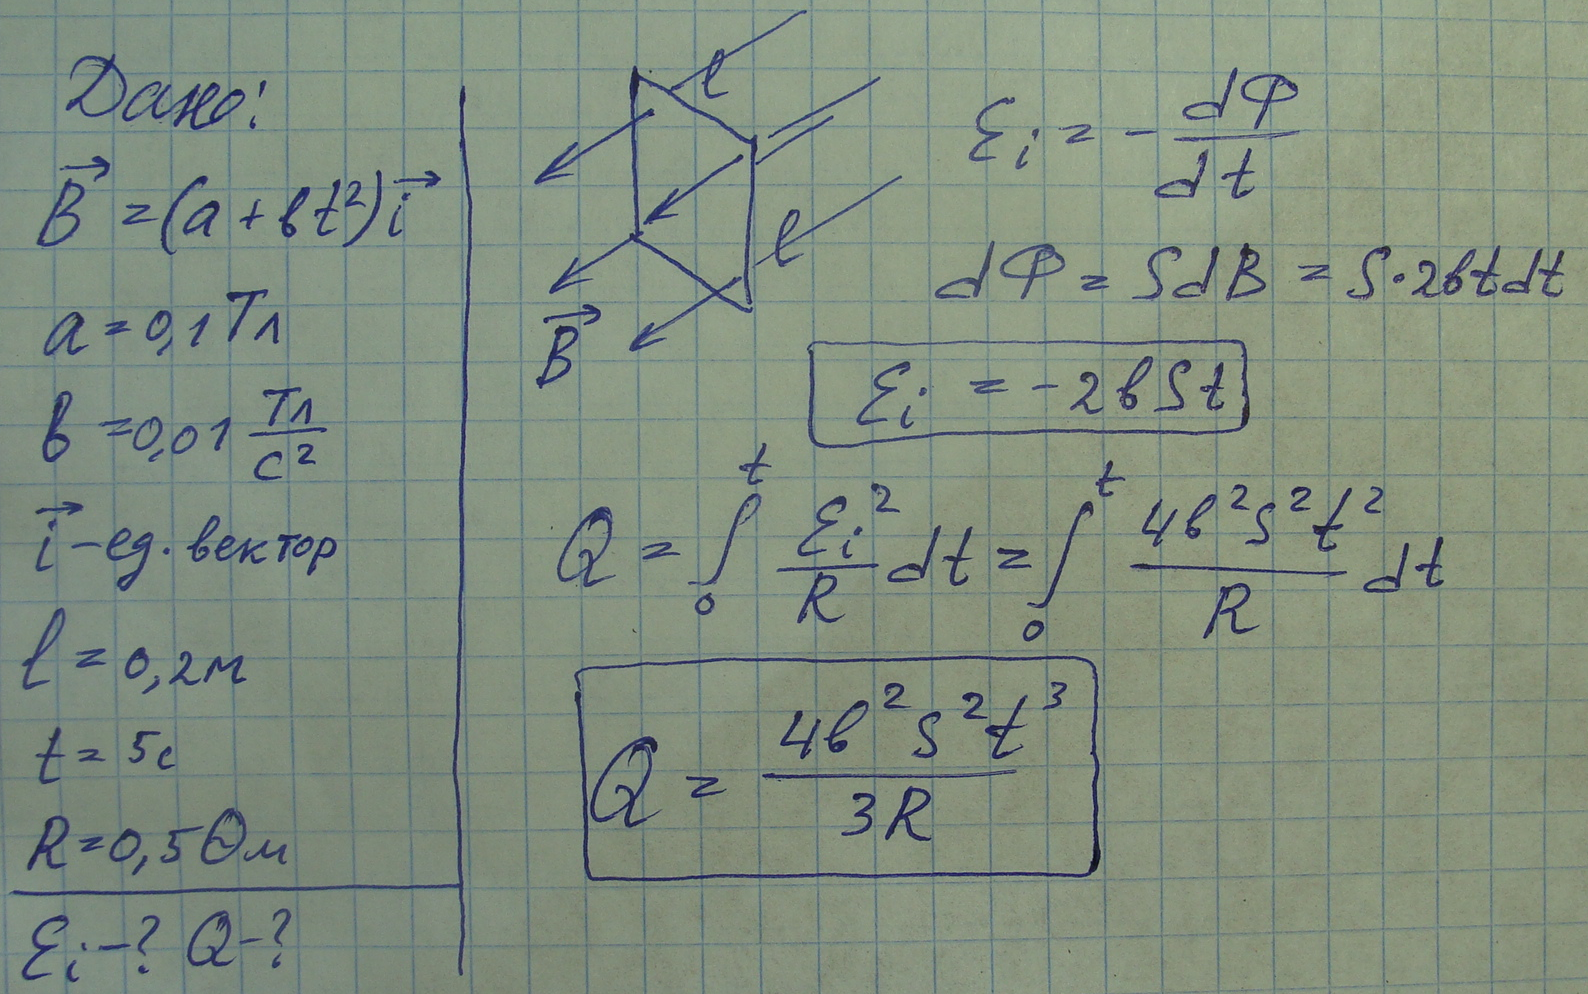 Дано:
B⃗ = (a + bt²)i⃗
a = 0,1 Тл
b = 0,01 Тл/с²
i⃗ - ед. вектор
l = 0,2м
t = 5с
R = 0,5 Ом
Ɛi - ? Q - ?
l
l
B⃗
Ɛi = - dФ/dt
dФ = SdB = S·2btdt
Ɛi = -2bSt
Q = ∫₀ᵗ Ɛi²/R dt = ∫₀ᵗ 4b²S²t²/R dt
Q = 4b²S²t³/3R